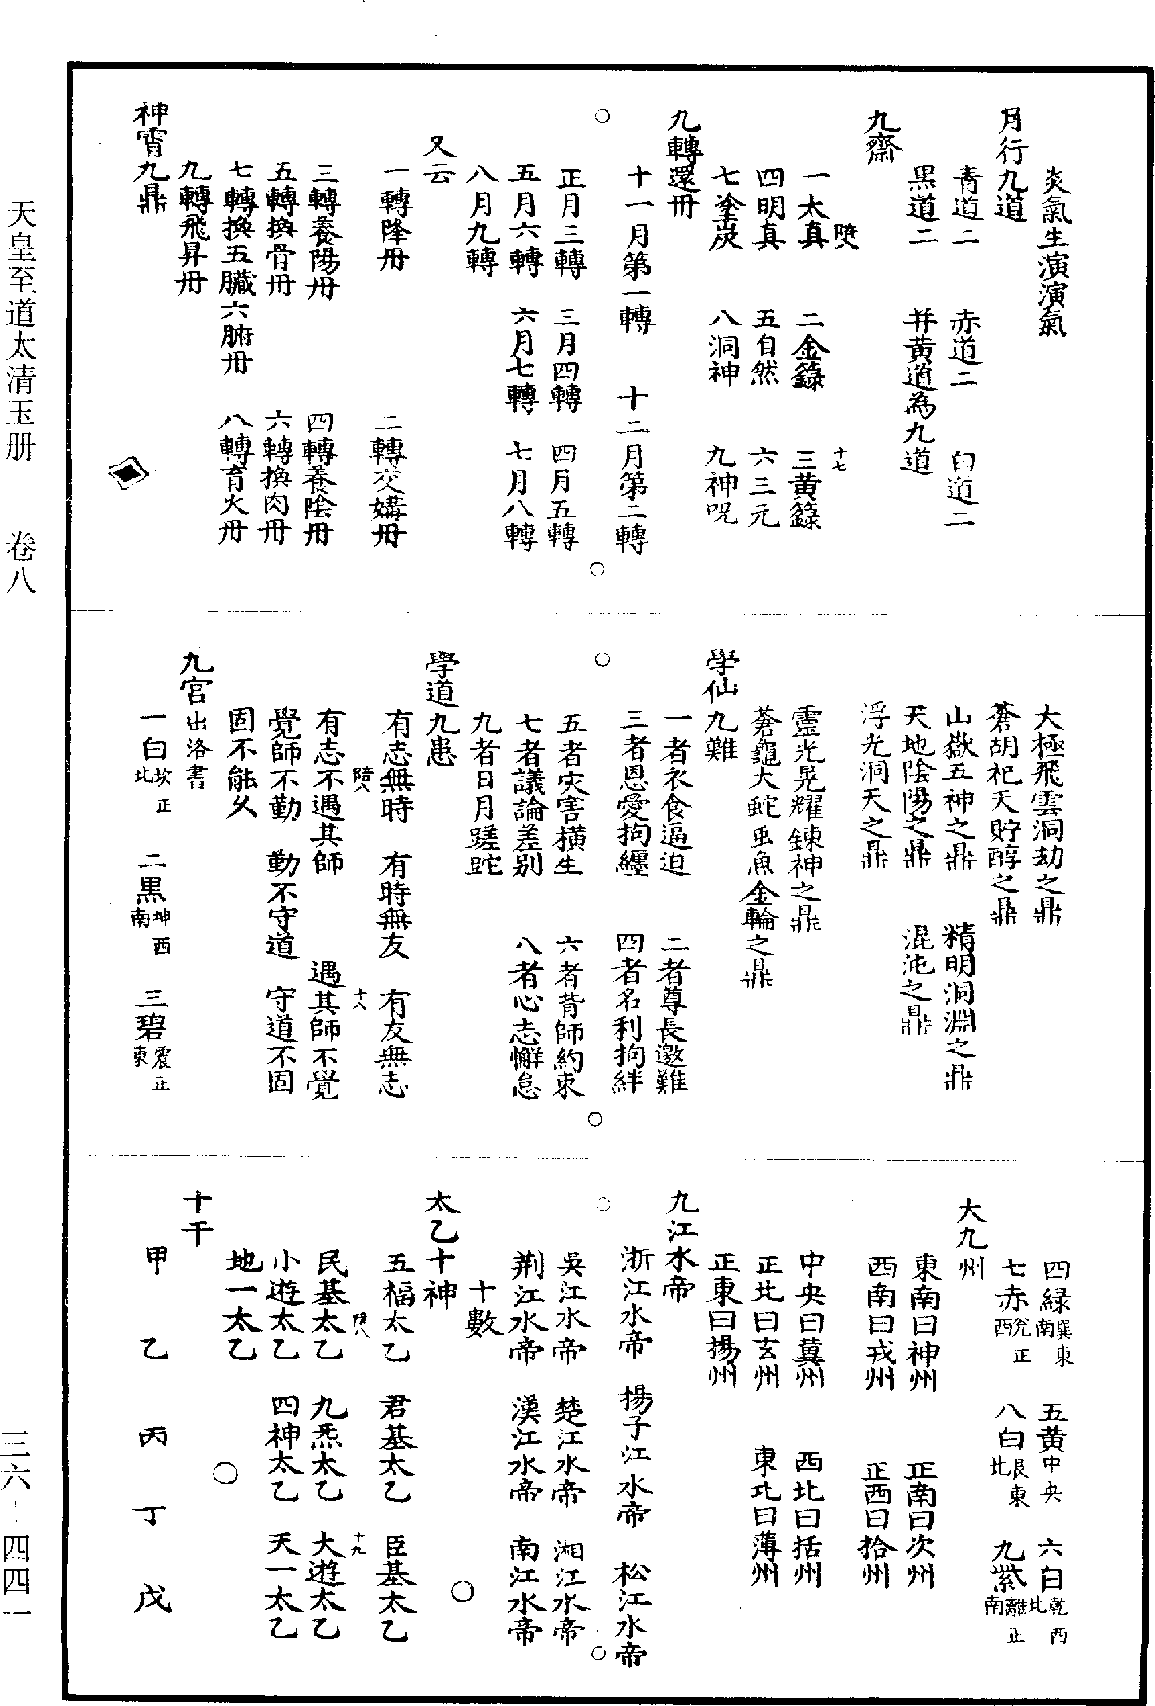 炎氣生演演氣
月行九道
青道二　赤道二　白道二
黑道二　并黃道為九道
九齋
陖　十七
一太真　二金籙　三黃籙
四明真　五自然　六三元
七塗炭　八洞神　九神呪
九轉還丹
十一月第一轉　十二月第二轉
正月三轉　三月四轉　四月五轉
五月六轉　六月七轉　七月八轉
八月九轉
又云
一轉降丹　二轉交媾丹
三轉養陽丹　四轉養陰丹
五轉換骨丹　六轉換肉丹
七轉換五臟六腑丹　八轉育火丹
九轉飛昇丹
神霄九鼎
太極飛雲洞劫之鼎
蒼胡祀天貯醇之鼎
山嶽五神之鼎　精明洞淵之鼎
天地陰陽之鼎　混沌之鼎
浮光洞天之鼎
靈光晃耀鍊神之鼎
蒼龜大蛇虫魚金輪之鼎
學仙九難
一者衣食逼迫　二者尊長邀難
三者恩愛拘纒　四者名利拘絆
五者灾害橫生　六者背師約束
七者議論差別　八者心志懈怠
九者日月蹉跎
學道九患
有志無時　有時無友　有友無志
十八
有志不遇其師　遇其師不覺
覺師不勤　勤不守道　守道不固
固不能久
九宮出洛書
一白坎正北　二黑坤西南　三碧震正東
四綠巽東南　五黃中央　六白乾西北
七赤兊正西　八白艮東北　九紫離正南
大九州
東南曰神州　正南曰次州
西南曰戎州　正西曰拾州
中央曰冀州　西北曰括州
正北曰玄州　東北曰薄州
正東曰揚州
九江水帝
浙江水帝　揚子江水帝　松江水帝
吳江水帝　楚江水帝　湘江水帝
荆江水帝　漢江水帝　南江水帝
十數
太乙十神
五福太乙　君基太乙　臣基太乙
十九
民基太乙　九炁太乙　大遊太乙
小遊太乙　四神太乙　天一太乙
地一太乙
十干
甲　乙　丙　丁　戊
天皇至道太清玉册　卷八
三六—四四一